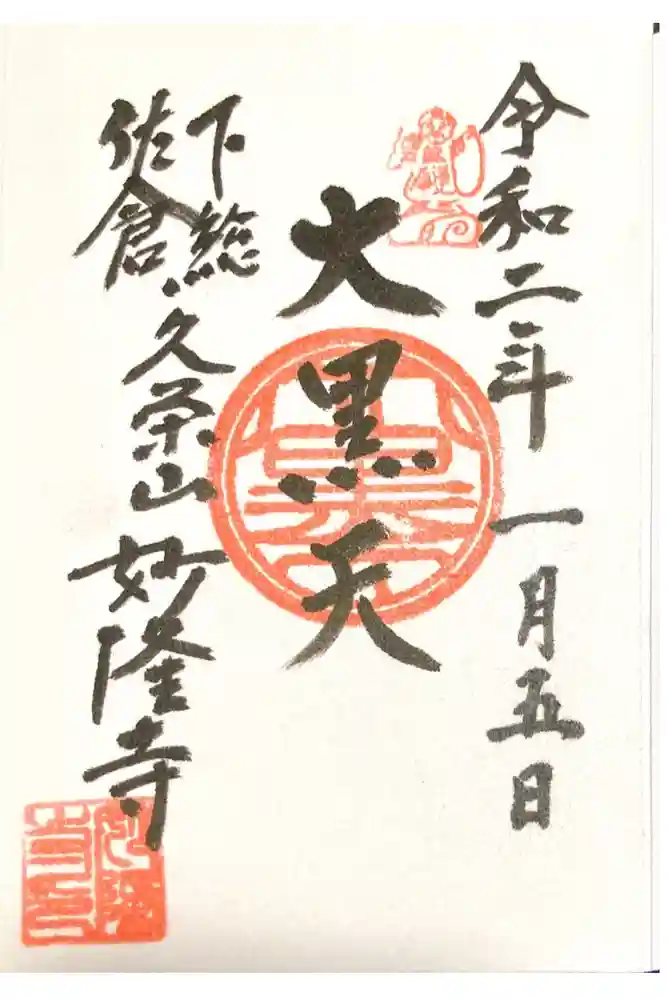 令和二年 一月五日
大黒天
下総
佐倉
久栄山 妙隆寺